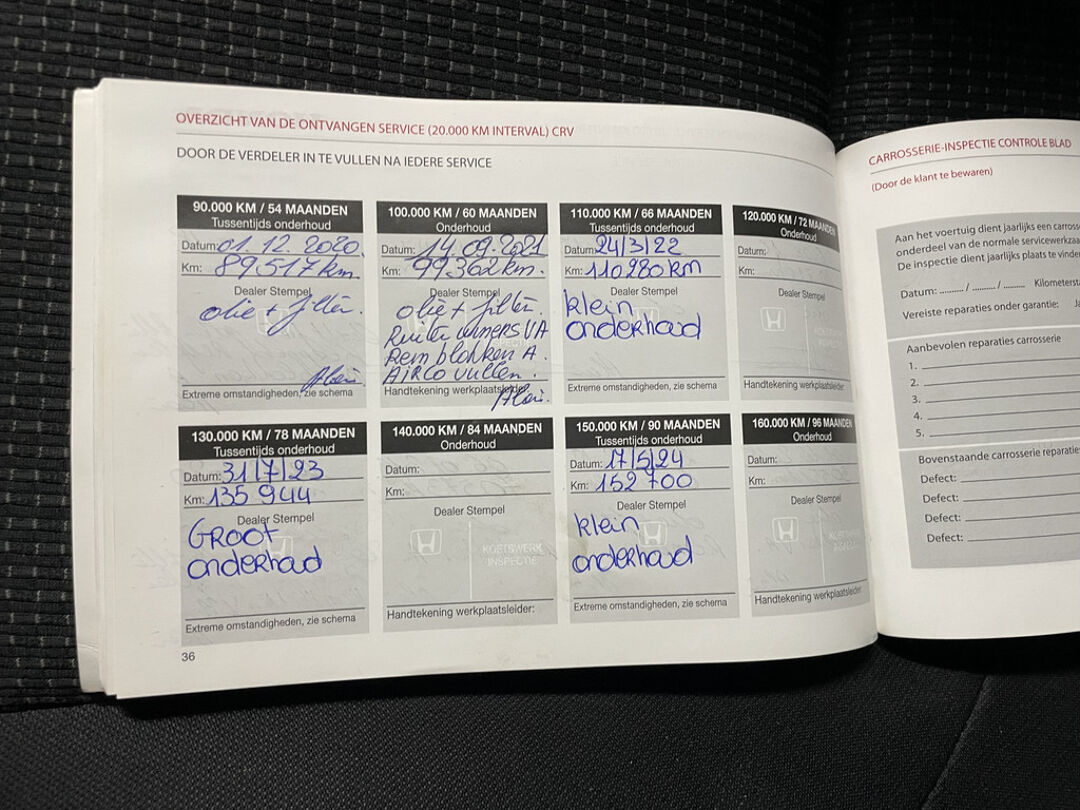 OVERZICHT VAN DE ONTVANGEN SERVICE (20.000 KM INTERVAL) CRV
DOOR DE VERDELER IN TE VULLEN NA IEDERE SERVICE
90.000 KM / 54 MAANDEN
Tussentijds onderhoud
Datum: 01.12.2020.
Km: 89517km.
Dealer Stempel
olie + filter.
Extreme omstandigheden, zie schema
100.000 KM / 60 MAANDEN
Onderhoud
Datum: 14.09.2021
Km: 99.362km.
Dealer Stempel
olie + filter.
VA
Rem blokken A.
AIRCO vullen.
Handtekening werkplaatsleider:
110.000 KM / 66 MAANDEN
Tussentijds onderhoud
Datum: 24/3/22
Km: 110280 km
klein
onderhoud
Extreme omstandigheden, zie schema
120.000 KM / 72 MAANDEN
Onderhoud
Datum:
Km:
Dealer Stempel
Handtekening werkplaatsleider:
130.000 KM / 78 MAANDEN
Tussentijds onderhoud
Datum: 31/7/23
Km: 135 944
Dealer Stempel
GROOT
onderhoud
Extreme omstandigheden, zie schema
140.000 KM / 84 MAANDEN
Onderhoud
Datum:
Km:
Dealer Stempel
KOETSWERK
INSPECTIE
Handtekening werkplaatsleider:
150.000 KM / 90 MAANDEN
Tussentijds onderhoud
Datum: 17/5/24
Km: 152 700
Dealer Stempel
klein
onderhoud
Extreme omstandigheden, zie schema
160.000 KM / 96 MAANDEN
Onderhoud
Datum:
Km:
Dealer Stempel
Handtekening werkplaatsleider:
36
CARROSSERIE-INSPECTIE CONTROLE BLAD
(Door de klant te bewaren)
Aan het voertuig dient jaarlijks een
onderdeel van de normale
De inspectie dient jaarlijks plaats te
Datum: .......... / .......... / .......... 
Vereiste reparaties onder garantie:
Aanbevolen reparaties carrosserie
1.
2.
3.
4.
5.
Bovenstaande carrosserie
Defect:
Defect:
Defect:
Defect: